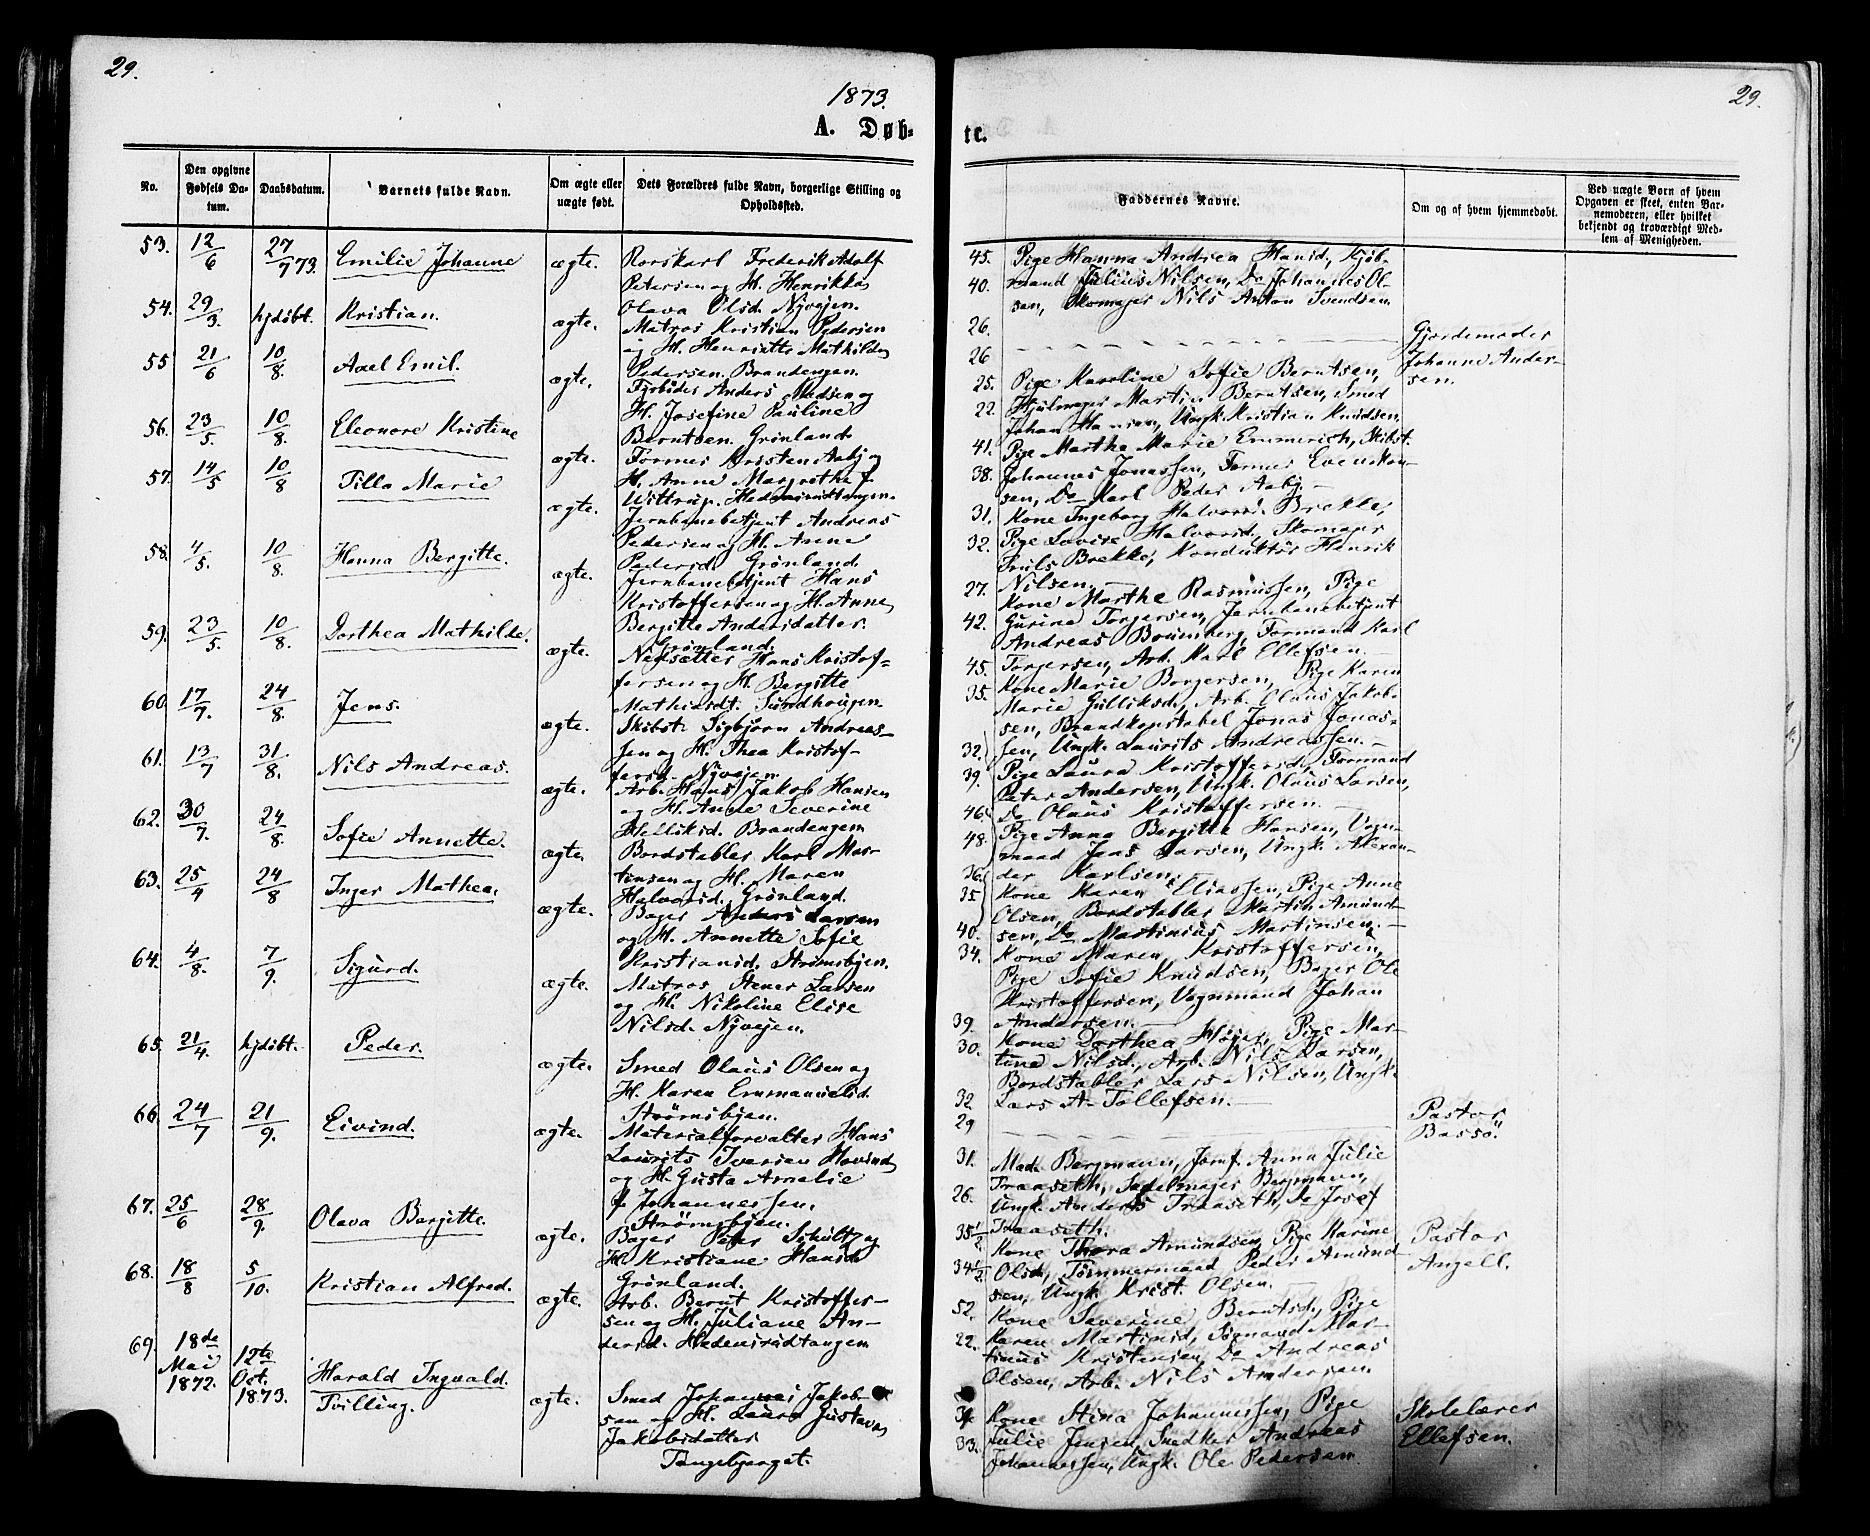 29.
1873.
A. Døb-
No.
Den opgivne Fødsels Da-
tum.
Daabsdatum.
Barnets fulde Navn.
Om ægte eller
uægte født.
Dets Forældres fulde Navn, borgerlige Stilling og
Opholdssted.
53. 12/6 27/7 73. Emilie Johanne ægte.
Petersen og H. Henrikka
Olava Olsd. Nyvejen.
54. 29/3. hjdøbt. Kristian. ægte.
Matros Kristian Pedersen
og H. Henriette Mathilde
Pedersen. Brandengen.
55 21/6 10/8. Axel Emil. ægte.
Fyrbøder Anders Madsen og
H. Josefine Pauline
Berntsen. Grønland.
56. 23/5. 10/8. Eleonore Kristine ægte.
Former Kristen Aaby og
H. Anne Margrethe f.
Wittrup. Hedensrudtangen.
57. 14/5 10/8 Tilla Marie ægte.
Jernbanebetjent Andreas
Pedersen og H. Anne
Pedersd. Grønland.
58. 4/5. 10/8. Hanna Bergitte. ægte.
Jernbanebetjent Hans
Kristoffersen og H. Anne
Bergitte Andersdatter.
Grønland.
59. 23/5. 10/8. Dorthea Mathilde. ægte.
Hans Kristof-
fersen og H. Bergitte
Mathiasdt. Sundhougen.
60. 17/7. 24/8. Jens. ægte.
Skibst. Sigbjørn Andreas-
sen og H. Thea Kristof-
fersd. Nyvejen
61. 13/7 31/8. Nils Andreas. ægte.
Arb. Hans Jakob Hansen
og H. Anne Severine
Brandengen
62. 30/7. 24/8. Sofie Annette. ægte.
Bordstabler Karl Mar-
tinsen og H. Maren
Halvorsd. Grønland.
63. 25/4 24/8 Inger Mathea. ægte.
Bager Anders Larsen
og H. Annette Sofie
Kristiansd. Strømsbyen.
64. 4/8. 7/9. Sigurd. ægte.
Matros Stener Larsen
og H. Nikoline Elise
Nilsd. Nyvejen.
65. 21/4. hjdøbt. Peder. ægte.
Smed Olaus Olsen og
H. Karen Emmanuelsd.
Strømsbyen.
66. 24/7 21/9. Eivind. ægte.
Materialforvalter Hans
Laurits Iversen Hovind
og H. Gusta Amalie
f. Johannessen.
Strømsbyen.
67. 25/6 28/9. Olava Bergitte. ægte.
Bager Peter Schultz og
H. Kristiane Hansd.
Grønland.
68. 18/8 5/10. Kristian Alfred. ægte.
Arb. Bernt Kristoffer-
sen og H. Juliane An-
dersd. Hedensrudtangen
69. 18de
Mai
1872. 12te
Oct.
1873. Harald Ingvald.
Tvilling. ægte.
Smed Johannes Jakob-
sen og H. Laura Gustava
Jakobsdatter
Tangebjerget.
29.
te.
Faddernes Navne.
Om og af hvem hjemmedøbt.
Ved uægte Born af hvem
Opgaven er skeet, enten Bar-
nemoderen, eller hvilket
bekjendt og troværdigt Med-
lem af Menigheden.
45. Pige Hanna Andrea Hansd., Kjøb-
40. mand Julius Nilsen, Do Johannes Ol-
sen, Skomager Nils Anton Svendsen.
26. Gjordemoder
26 Johanne Ander-
sen.
25. Pige Karoline Sofie Berntsen,
22. Hjulmager Martin Berntsen, Smed
Johan Hansen, Ungk. Kristian Knudsen.
41. Pige Marthe Marie Emmerich, Skibst.
38. Johannes Jonassen, Former Even
sen, Do Karl Peder Aaby. —
31. Kone Ingeborg Halvorsd. Brekke,
32. Pige Lovise Halvorsd., Skomager
Brekke, Konduktør Henrik
Nilsen. —
27. Kone Marthe Rasmussen, Pige
42. Gurine Torgersen, Jernbanebetjent
Andreas Formand Karl
Torgersen, Arb. Karl Ellefsen. —
45. Kone Marie Borgersen, Pige Karen
35. Marie Gulliksd., Arb. Olaus Jakob-
sen, Brandkonstabel Jonas Jonas-
sen, Ungk. Laurits Andreassen. —
32. Pige Laura Kristoffersd., Formand
39. Peter Andersen, Ungk. Olaus Larsen,
Do Olaus Kristoffersen. —
46. Pige Anna Bergitte Hansen, Vogn-
48. mand Jens Larsen, Ungk. Alexan-
der Karlsen.
36. Kone Karen Eliassen, Pige Anne
35 Olsen, Bordstabler Martin Amund-
sen, Do Martinius Martinsen. —
40. Kone Maren Kristoffersen,
34. Pige Sofie Knudsen, Bager Ole
Kristoffersen, Vognmand Johan
Andersen. —
39. Kone Dorthea Pige Mar-
30. tine Nilsd., Arb. Nils Larsen,
Bordstabler Lars Nilsen, Ungk.
Lars A. Tollefsen. —
32. Pastor
29 Bassö.
31. Mad. Bergmann, Jomf. Anna Julie
Fraaseth, Sadelmager Bergmann,
26. Ungk. Anders Fraaseth, Do Josef
Fraaseth.
35 1/2 Kone Thora Amundsen, Pige Karine Pastor
34 1/2 Olsd., Tømmermand Peder Amund- Angell.
sen, Ungk. Krist. Olsen. —
52. Kone Severine Berntsd., Pige
22. Karen Martinsd., Sømand Mar-
tinus Kristensen, Do Andreas
Olsen, Arb. Nils Andersen.
34. Kone Stina Johannessen, Pige Skolelærer
33. Julie Jensen, Snedker Andreas Ellefsen.
Johannessen, Ungk. Ole Pedersen